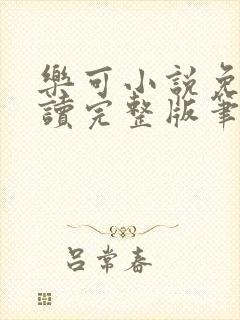 樂可小說免
讀完整版筆
吕常春